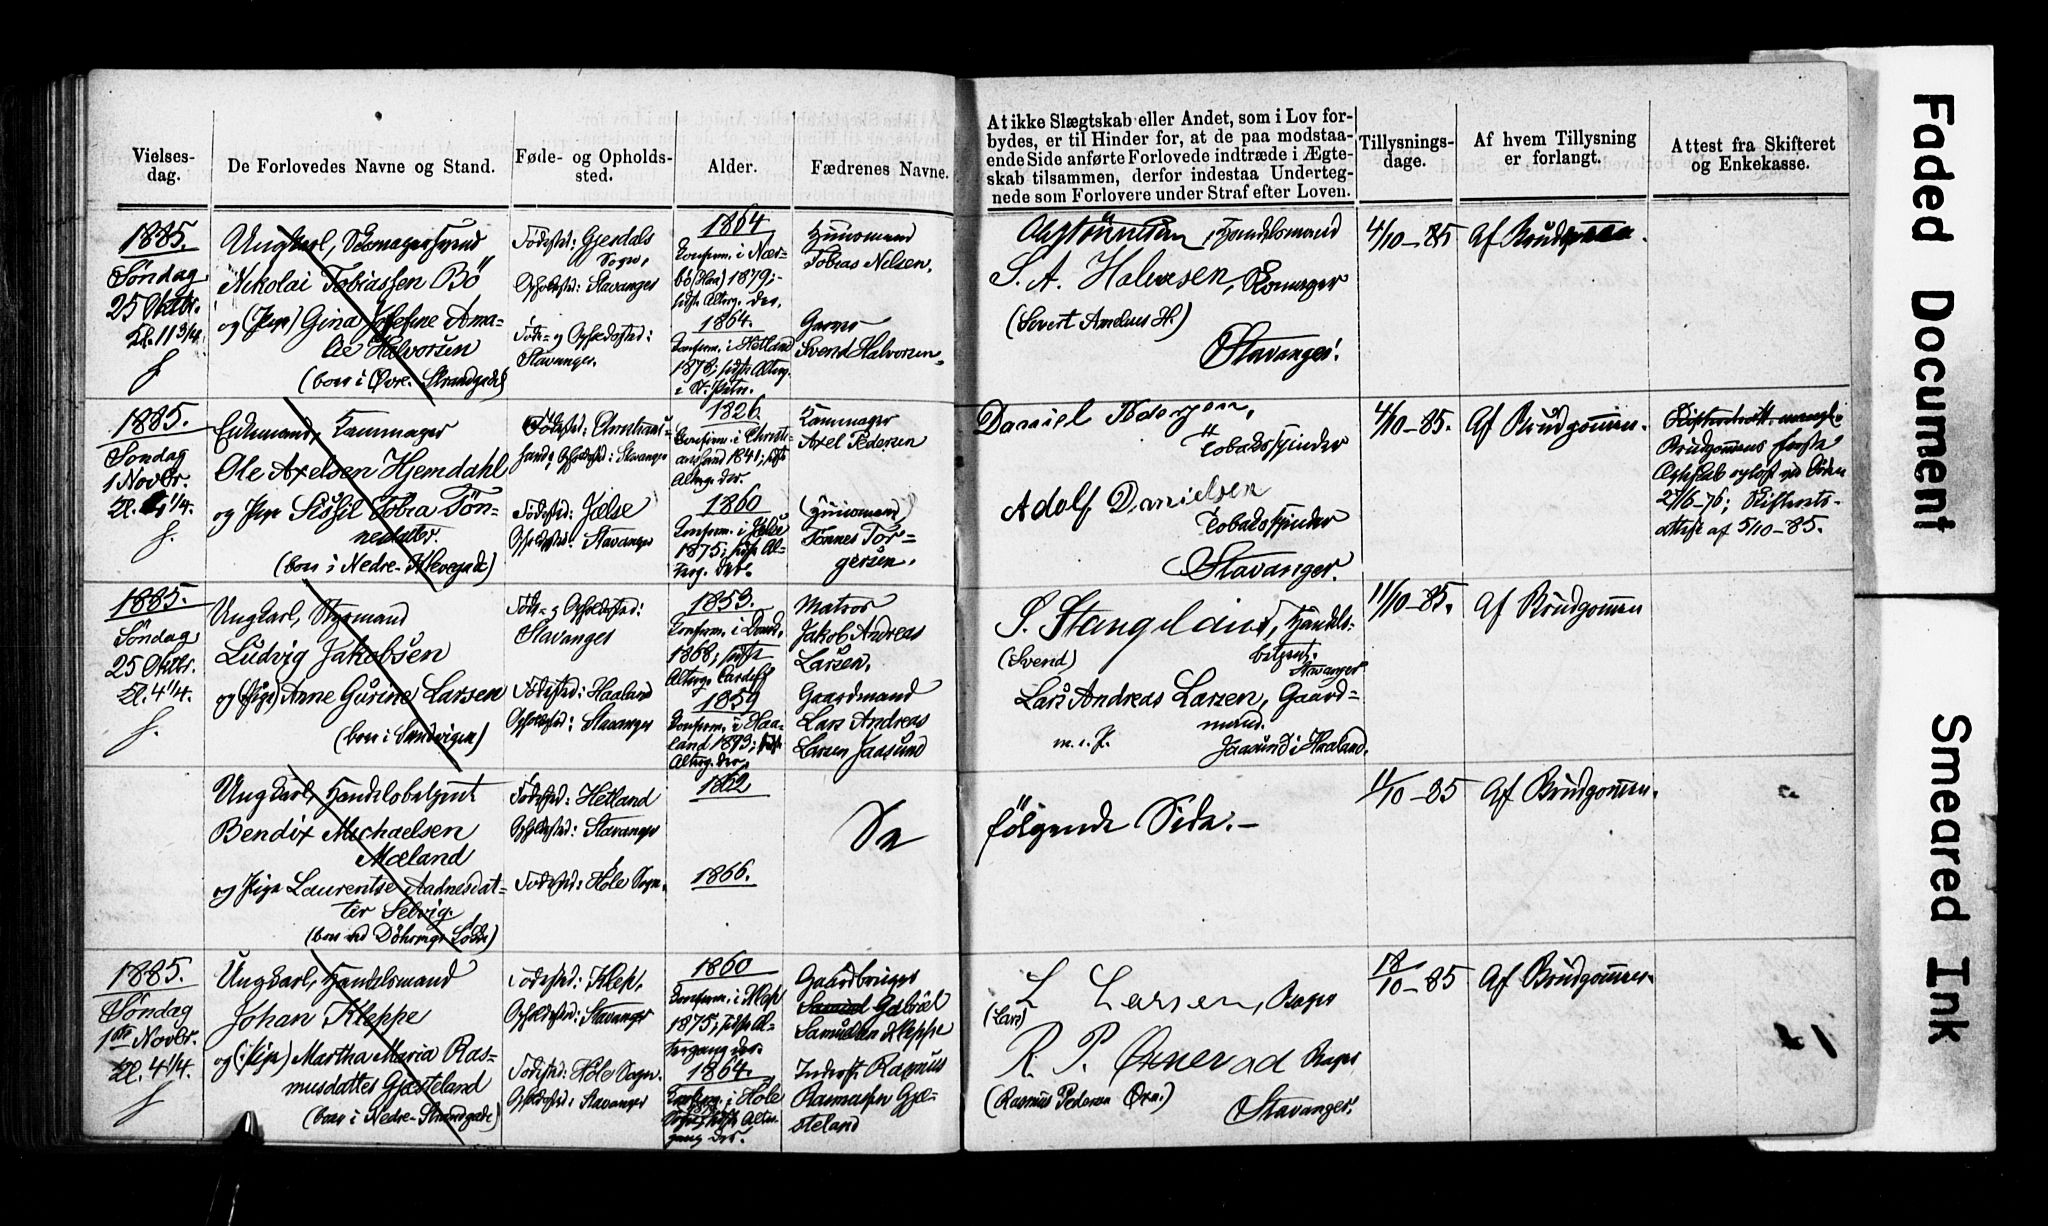 Vielses-
dag.
De Forlovedes Navne og Stand.
Føde- og Opholds-
sted.
Alder.
Fædrenes Navne.
At ikke Slægtskab eller Andet, som i Lov for-
bydes, er til Hinder for, at de paa modstaa-
ende Side anførte Forlovede indtræde i Ægte-
skab tilsammen, derfor indestaa Undertegn-
nede som Forlovere under Straf efter Loven.
Tillysnings-
dage.
Af hvem Tillysning
er forlangt.
Attest fra Skifteret
og Enkekasse.
1885.
Søndag
25 Oktbr.
Kl. 11 3/4
Ungkarl, Skomagersvend
Nikolai Tobiassen Bö
og (Pige) Gina Josefine Ama-
lie Halvorsen
(boer i Øvre Strandgade)
Fødested: Gjesdals
Sogn,
Opholdssted: Stavanger
Føde- og Opholdssted:
Stavanger.
1864
Konfirm. i Nær-
bö (Haa) 1879;
sidste Alterg. der.
1864.
Konfirm. i Hetland
1878; sidste Alterg.
i St. Petri.
Huusmand
Tobias Nilsen.
Garver
Svend Halvorsen
Handelsmand
S. A. Halvorsen, Skomager
(Sivert Andreas H.)
Stavanger.
4/10-85
Af Brudgommen.
1885.
Søndag
1 Novbr.
Kl. 4 1/4.
Enkemand, Kammager
Ole Axelsen Hjemdahl
og Pige Sissil Tobia Tön-
nesdatter.
(boer i Nedre Klevegade)
Fødested: Christians-
sand, Opholdssted: Stavanger
Fødested: Jelse
Opholdssted: Stavanger
1826.
Konfirm. i Christi-
anssand 1841; sidste
Alterg. der.
1860
Konfirm. i Jelse
1875; sidste Al-
terg. der.
Kammager
Axel Pedersen
Huusmand
Tönnes Tor-
gersen.
Daniel
Tobaksspinder
Adolf Danielsen
Tobaksspinder
Stavanger.
4/10-85.
Af Brudgommen.
Brudgommens første
Ægteskab oplöst ved Döden
2/6-76; Skifterets-
attest af 5/10-85.
1885.
Søndag
25 Oktbr.
Kl. 4 1/4.
Ungkarl, Styrmand
Ludvig Jakobsen
og (Pige) Anne Gurine Larsen
(boer i Sandvigen)
Føde- og Opholdssted:
Stavanger
Fødested: Haaland
Opholdssted: Stavanger
1853.
Konfirm. i Domk.
1868; sidste
Alterg. Cardiff
1859
Konfirm. i Haa-
land 1873; sidste
Alterg. der.
Matros
Jakob Andreas
Larsen.
Gaardmand
Lars Andreas
Larsen Jaasund
S. Stangeland, Handels-
betjent.
(Svend)
Stavanger
Lars Andreas Larsen, Gaard-
mand.
m. i. P.
Jaasund i Haaland.
11/10-85.
Af Brudgommen
Ungkarl, Handelsbetjent
Bendix Michaelsen
Mæland
og Pige Laurentse Aadnesdat-
ter Selvig.
(boer ved Döhrings Lökke)
Fødested: Hetland
Opholdssted: Stavanger
Fødested: Höle Sogn.
1862
1866.
Se
følgende Side. -
11/10-85
Af Brudgommen.
1885.
Søndag
1ste Novbr.
Kl. 4 1/4.
Ungkarl, Handelsmand
Johan Kleppe
og (Pige) Martha Maria Ras-
musdatter Gjæsteland
(boer i Nedre Strandgade)
Fødested: Klep,
Opholdssted: Stavanger
Fødested: Höle Sogn.
Opholdssted: Stavanger
1860
Konfirm. i Klep
1875; sidste Al-
tergang der.
1864.
Konfirm. i Höle
sidste Alter-
gang der.
Gaardbruger
Gabriel
Samuelsen Kleppe
Inderst Rasmus
Rasmussen Gjæ-
steland
L Larsen, Bager
(Lars)
R. P. Bager
(Rasmus Pedersen
Stavanger.
18/10-85
Af Brudgommen.
Faded Document
Smeared Ink